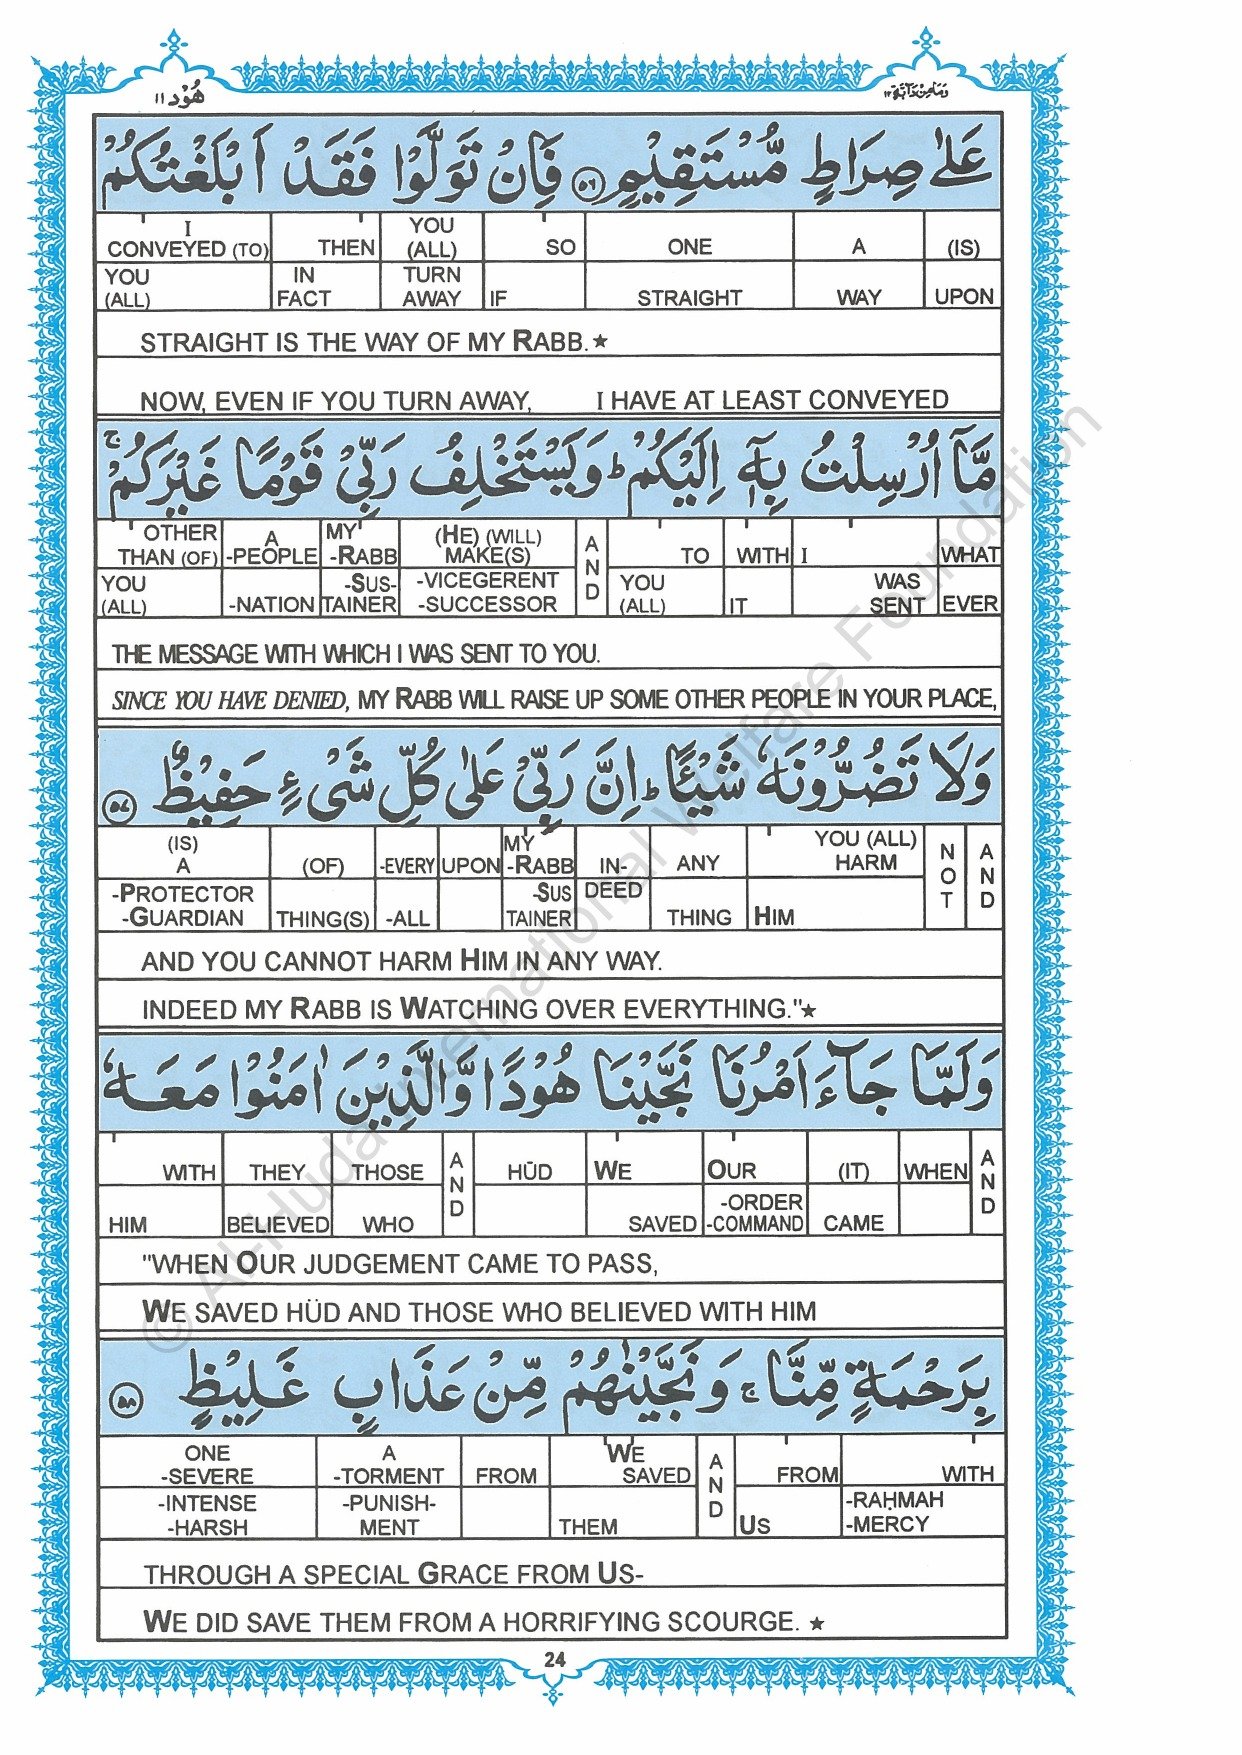 هُوْد ١١
وَمَا مِنْ دَآبَّةٍ ١٢
عَلٰى صِرَاطٍ مُّسْتَقِيْمٍ ۝٥٦ فَاِنْ تَوَلَّوْا فَقَدْ اَبْلَغْتُكُمْ
I YOU SO ONE A (IS)
CONVEYED (TO) THEN (ALL)
YOU IN TURN
(ALL) FACT AWAY IF STRAIGHT WAY UPON
STRAIGHT IS THE WAY OF MY RABB.★
NOW, EVEN IF YOU TURN AWAY, I HAVE AT LEAST CONVEYED
مَّآ اُرْسِلْتُ بِهٖٓ اِلَيْكُمْ ؕ وَيَسْتَخْلِفُ رَبِّيْ قَوْمًا غَيْرَكُمْ ۚ
OTHER A MY (HE) (WILL) A
THAN (OF) -PEOPLE -RABB MAKE(S) N TO WITH I WHAT
YOU -SUS- -VICEGERENT D YOU WAS
(ALL) -NATION TAINER -SUCCESSOR (ALL) IT SENT EVER
THE MESSAGE WITH WHICH I WAS SENT TO YOU.
SINCE YOU HAVE DENIED, MY RABB WILL RAISE UP SOME OTHER PEOPLE IN YOUR PLACE,
وَلَا تَضُرُّوْنَهٗ شَيْـًٔا ؕ اِنَّ رَبِّيْ عَلٰى كُلِّ شَيْءٍ حَفِيْظٌ ۝٥٧
(IS) MY YOU (ALL) N A
A (OF) -EVERY UPON -RABB IN- ANY HARM O N
-PROTECTOR -SUS DEED T D
-GUARDIAN THING(S) -ALL TAINER THING HIM
AND YOU CANNOT HARM HIM IN ANY WAY.
INDEED MY RABB IS WATCHING OVER EVERYTHING."★
وَلَمَّا جَآءَ اَمْرُنَا نَجَّيْنَا هُوْدًا وَّالَّذِيْنَ اٰمَنُوْا مَعَهٗ
WITH THEY THOSE AND HŪD WE OUR (IT) WHEN AND
-ORDER
HIM BELIEVED WHO SAVED -COMMAND CAME
"WHEN OUR JUDGEMENT CAME TO PASS,
WE SAVED HÜD AND THOSE WHO BELIEVED WITH HIM
بِرَحْمَةٍ مِّنَّا ۚ وَنَجَّيْنٰهُمْ مِّنْ عَذَابٍ غَلِيْظٍ ۝٥٨
ONE A WE A
-SEVERE -TORMENT FROM SAVED N FROM WITH
-INTENSE -PUNISH- D -RAḤMAH
-HARSH MENT THEM US -MERCY
THROUGH A SPECIAL GRACE FROM US-
WE DID SAVE THEM FROM A HORRIFYING SCOURGE. ★
24
© Al-Huda International Welfare Foundation